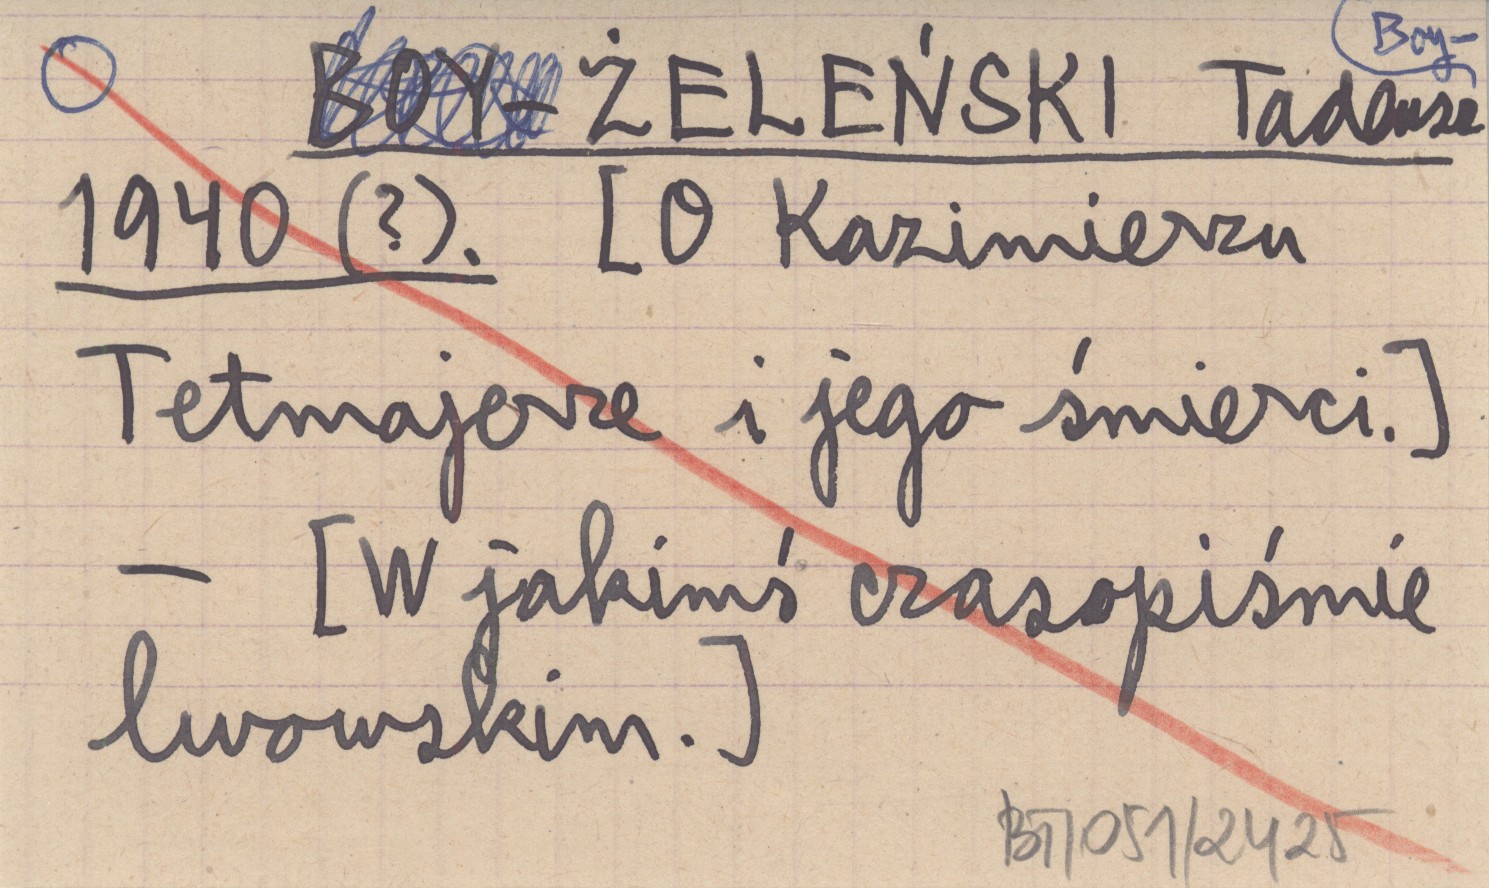 Boy-
BOY-ŻELEŃSKI Tadeusz
1940 (?). [O Kazimierzu
Tetmajerze i jego śmierci.]
— [W jakimś czasopiśmie
lwowskim.]
BT/051/2425